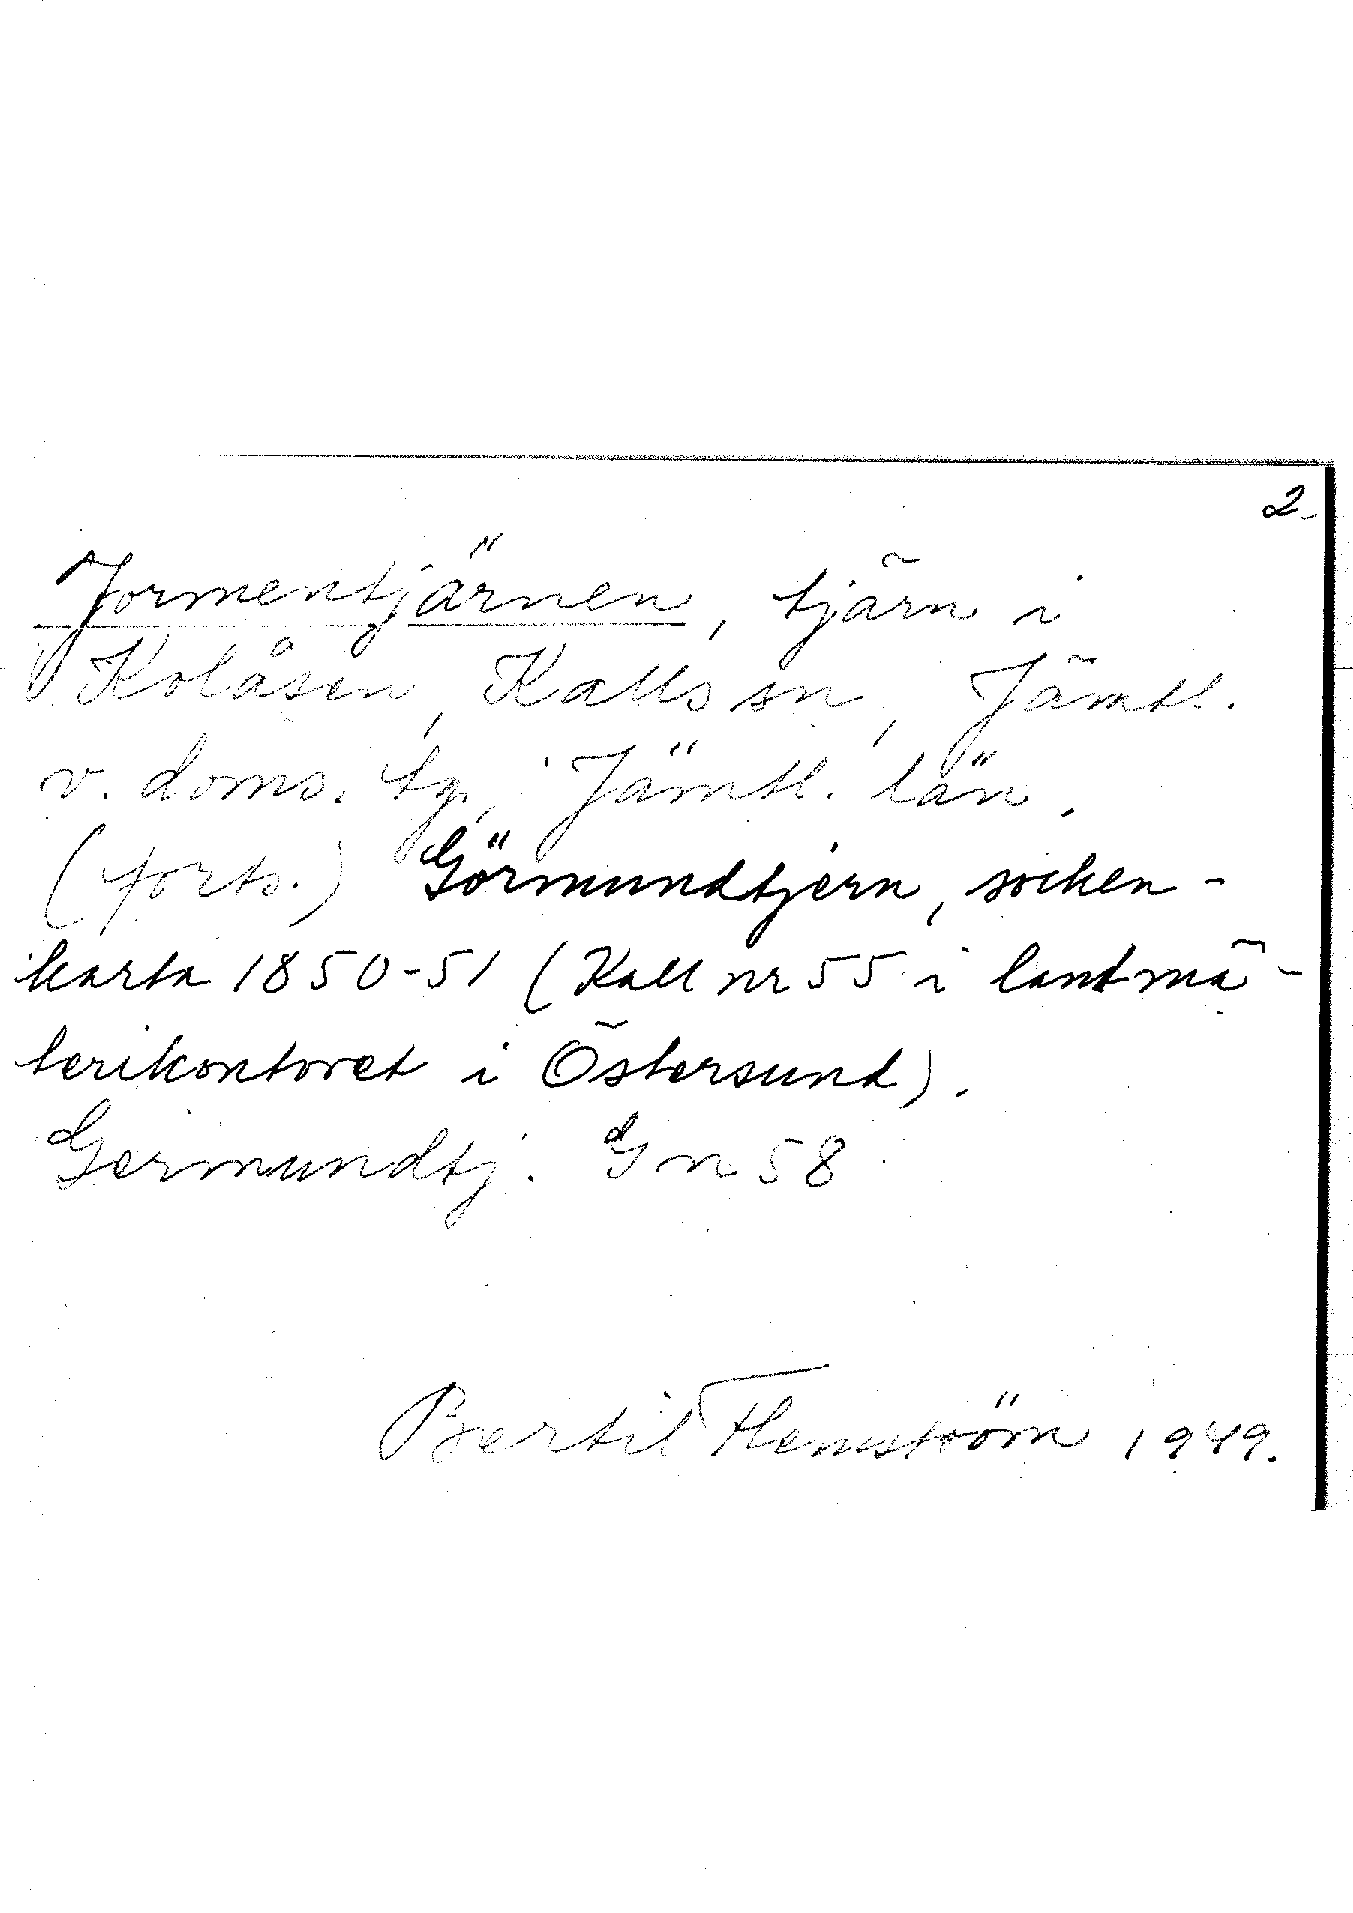 2
Jormentjärnen, tjärn i
Kolåsen, Kalls sn, Jämtl.
v. doms. tg, Jämtl. län.
(forts.) Görmundtjern, socken-
karta 1850-51 (Kall nr 55 i lantmä-
terikontoret i Östersund).
Germundtj. Gn 58
Bertil Flemström 1949.